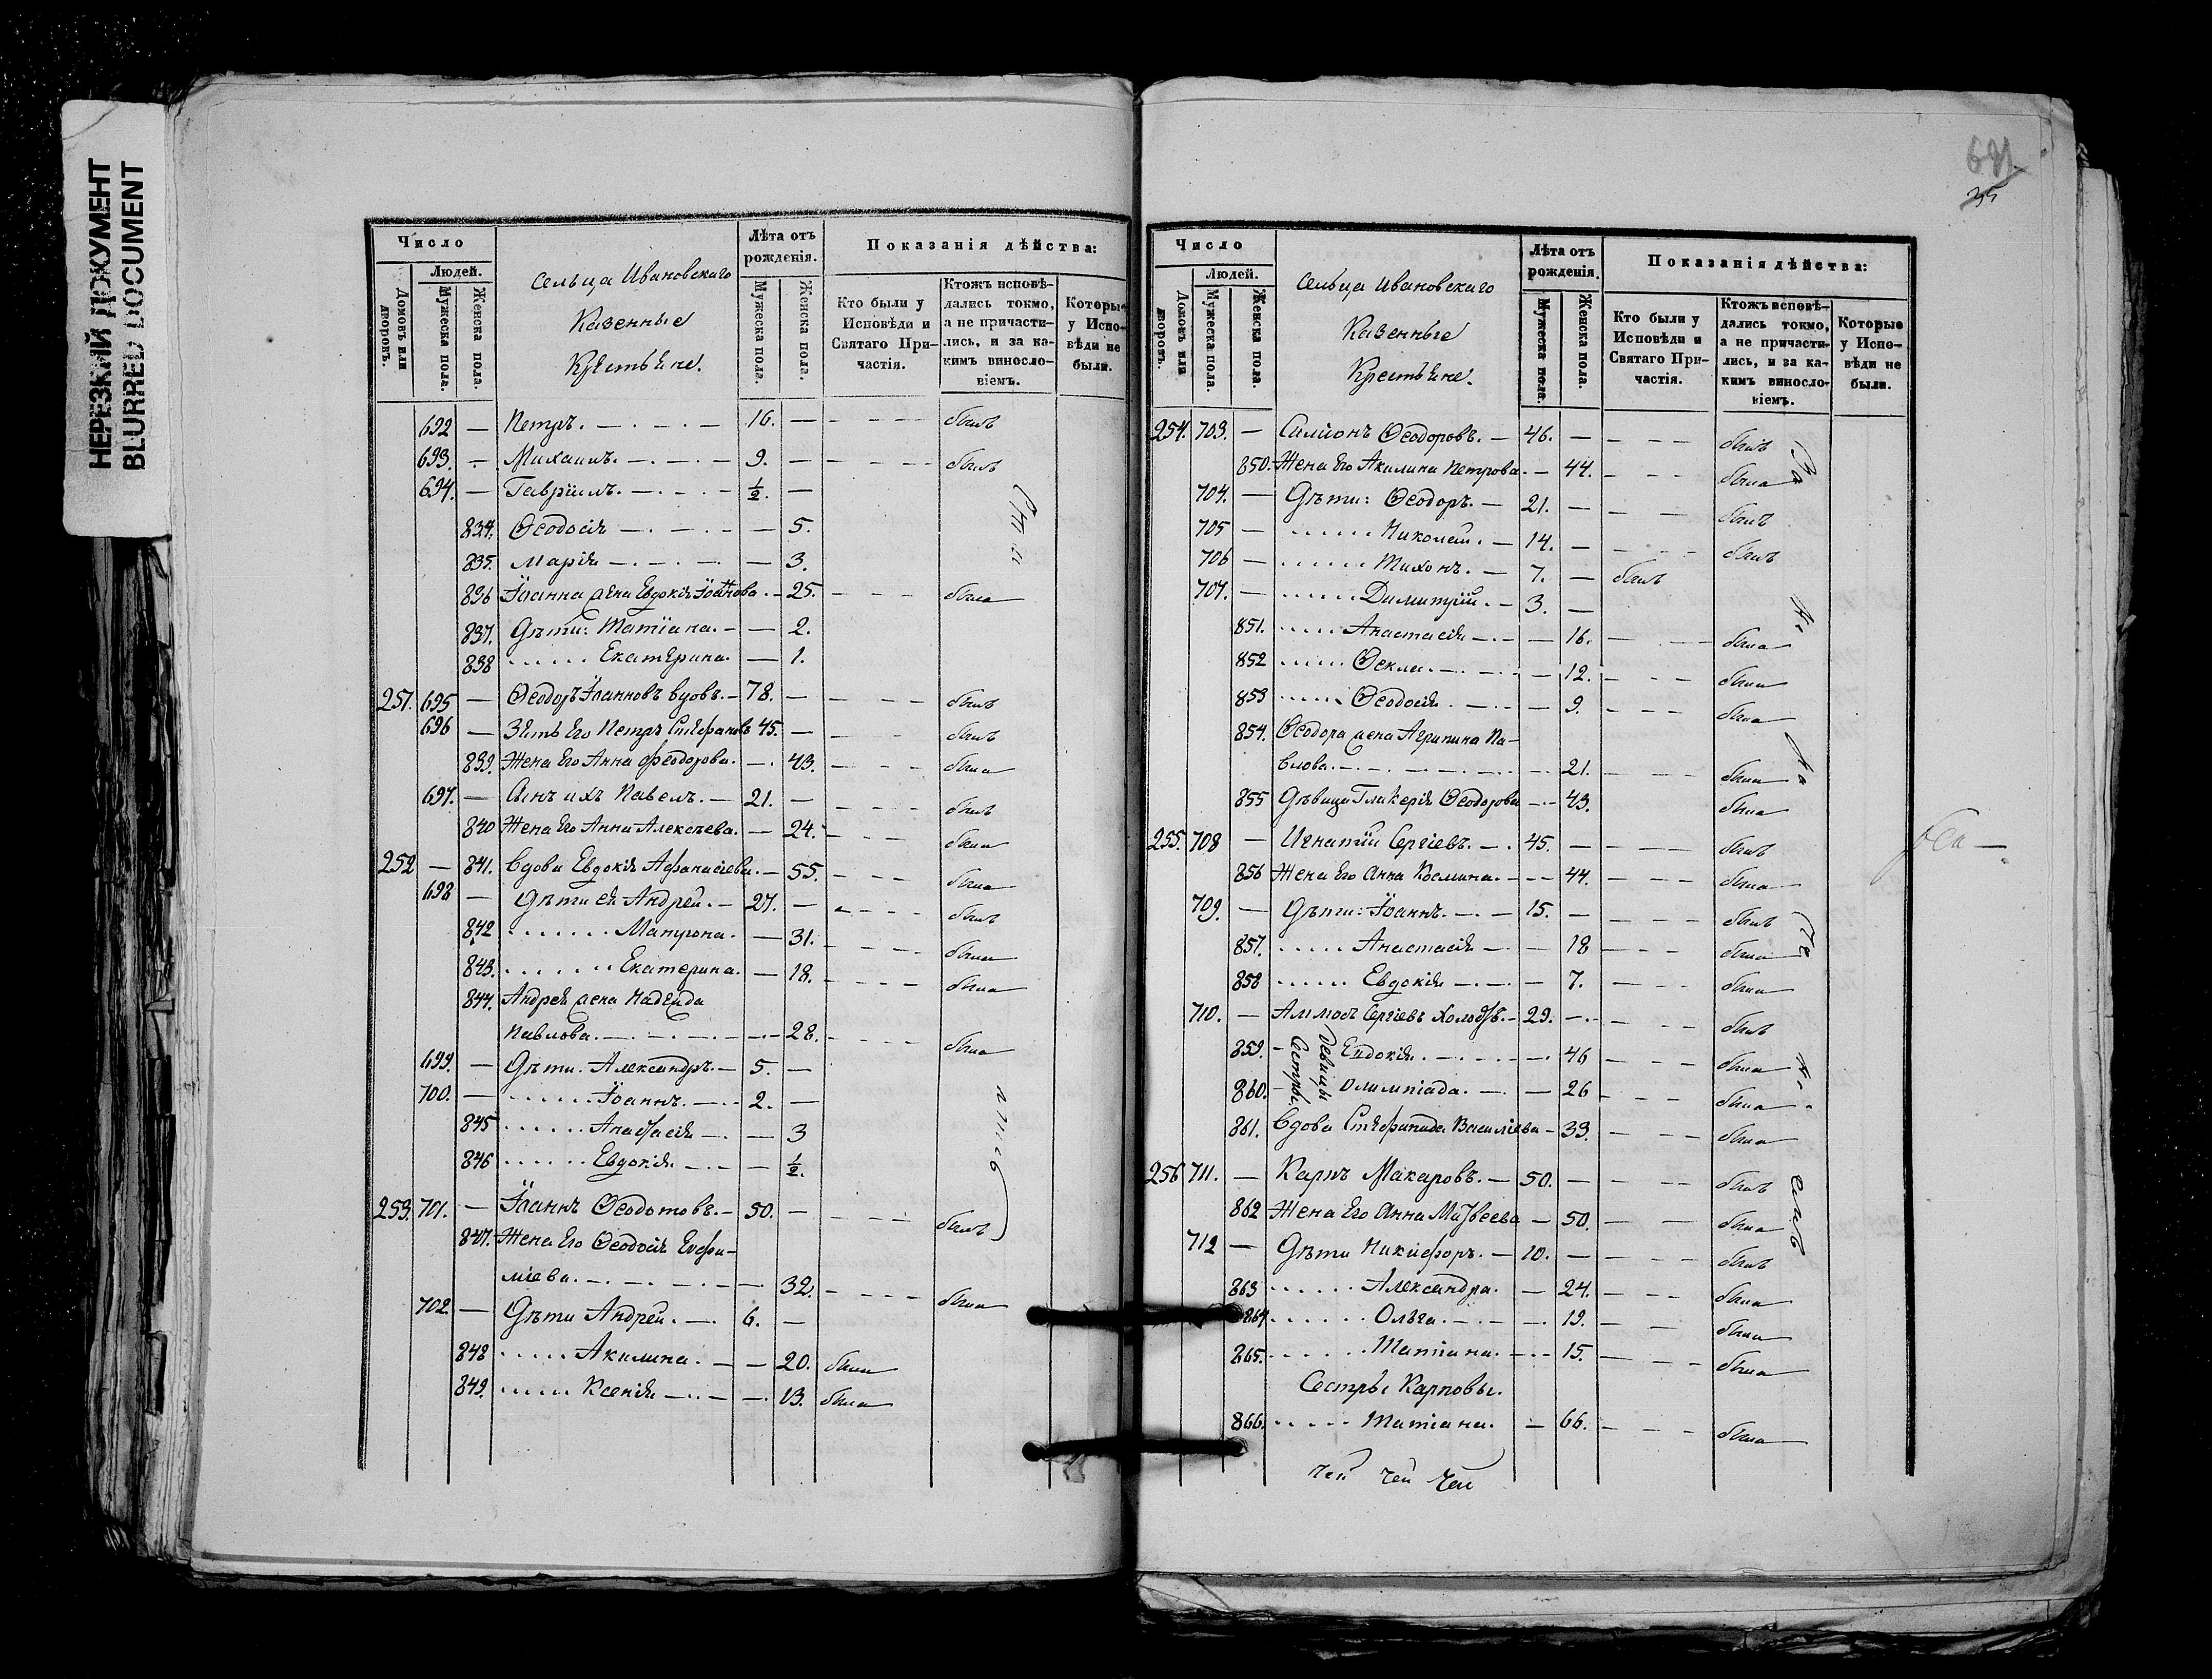 НЕРЕЗКИЙ ДОКУМЕНТ
BLURRED DOCUMENT
Число
Людей.
Домовъ или дворовъ.
Мужеска пола.
Женска пола.
Сельца Ивановскаго
Казенные
Крестьяне.
Лѣта отъ рожденія.
Мужеска пола.
Женска пола.
Показанія дѣйства:
Кто были у Исповѣди и Святаго Причастія.
Ктожъ исповѣдались токмо, а не причастились, и за какимъ винословіемъ.
Которые у Исповѣди не были.
692 — Петръ. — 16. — былъ
693. — Михаилъ. — 9. — былъ
694. — Гавріилъ. — ½. —
834. Ѳеодосія — 5.
835. Марія — 3.
836 Іоанна жена Евдокія Іоаннова. — 25. была
837. Дѣти: Татіана. — 2.
838 Екатерина. — 1.
251. 695 — Ѳеодоръ Іоанновъ вдовъ. — 78. — былъ
696 — Зять его Петръ Стефановъ 45. — былъ
839. Жена его Анна Феодорова. — 43. была
697. — Сынъ ихъ Павелъ. — 21. — былъ
840 Жена его Анна Алексѣева. — 24. была
252 — 841. Вдова Евдокія Афанасіева. — 55. была
698 — Дѣти ея Андрей. — 27. — былъ
842 Матрона. — 31. была
843. Екатерина. — 18. была
844. Андрея жена Надежда
Павлова. — 28. была
699. — Дѣти. Александръ. — 5. —
700. — Іоаннъ. — 2. —
845 Анастасія — 3
846 Евдокія — ½.
253. 701. — Іоаннъ Ѳеодотовъ. — 50. — былъ
847. Жена его Ѳеодосія Евфи-
міева. — 32. была
702. — Дѣти Андрей. — 6. —
848 Акилина. — 20. была
849. Ксенія — 13. была
691
35
Число
Людей.
Домовъ или дворовъ.
Мужеска пола.
Женска пола.
Сельца Ивановскаго
Казенные
Крестьяне.
Лѣта отъ рожденія.
Мужеска пола.
Женска пола.
Показанія дѣйства:
Кто были у Исповѣди и Святаго Причастія.
Ктожъ исповѣдались токмо, а не причастились, и за какимъ винословіемъ.
Которые у Исповѣди не были.
254. 703. — Симіонъ Ѳеодоровъ. — 46. — былъ
850. Жена его Акилина Петрова. — 44. была
704. — Дѣти: Ѳеодоръ. — 21. — былъ
705 — Николай. — 14. — былъ
706 — Тихонъ. — 7. — былъ
707. — Димитрій. — 3. —
851. Анастасія — 16. была
852 Ѳекла. — 12. была
853 Ѳеодосія. — 9. была
854. Ѳеодора жена Агрипина Па-
влова. — 21. была
855 Дѣвица Гликерія Ѳеодорова — 43. была
255. 708 — Игнатій Сергіевъ. — 45. — былъ
856 Жена его Анна Космина. — 44. была
709. — Дѣти: Іоаннъ. — 15. — былъ
857. Анастасія — 18 была
858 Евдокія — 7. была
710. — Аммосъ Сергіевъ холостъ. — 29. — былъ
Сестры девицы
859. — Евдокія. — 46 была
860. — Олимпіада. — 26 была
861. Вдова Стефанида Василіева — 33. была
256 711. — Карпъ Макаровъ. — 50. — былъ
862 Жена его Анна Матвеева — 50. была
712 — Дѣти Никифоръ. — 10. — былъ
863 Александра. — 24. была
864 Ольга. — 19. была
865. Татіана. — 15. была
Сестры Карповы.
866. Татіана. — 66. была